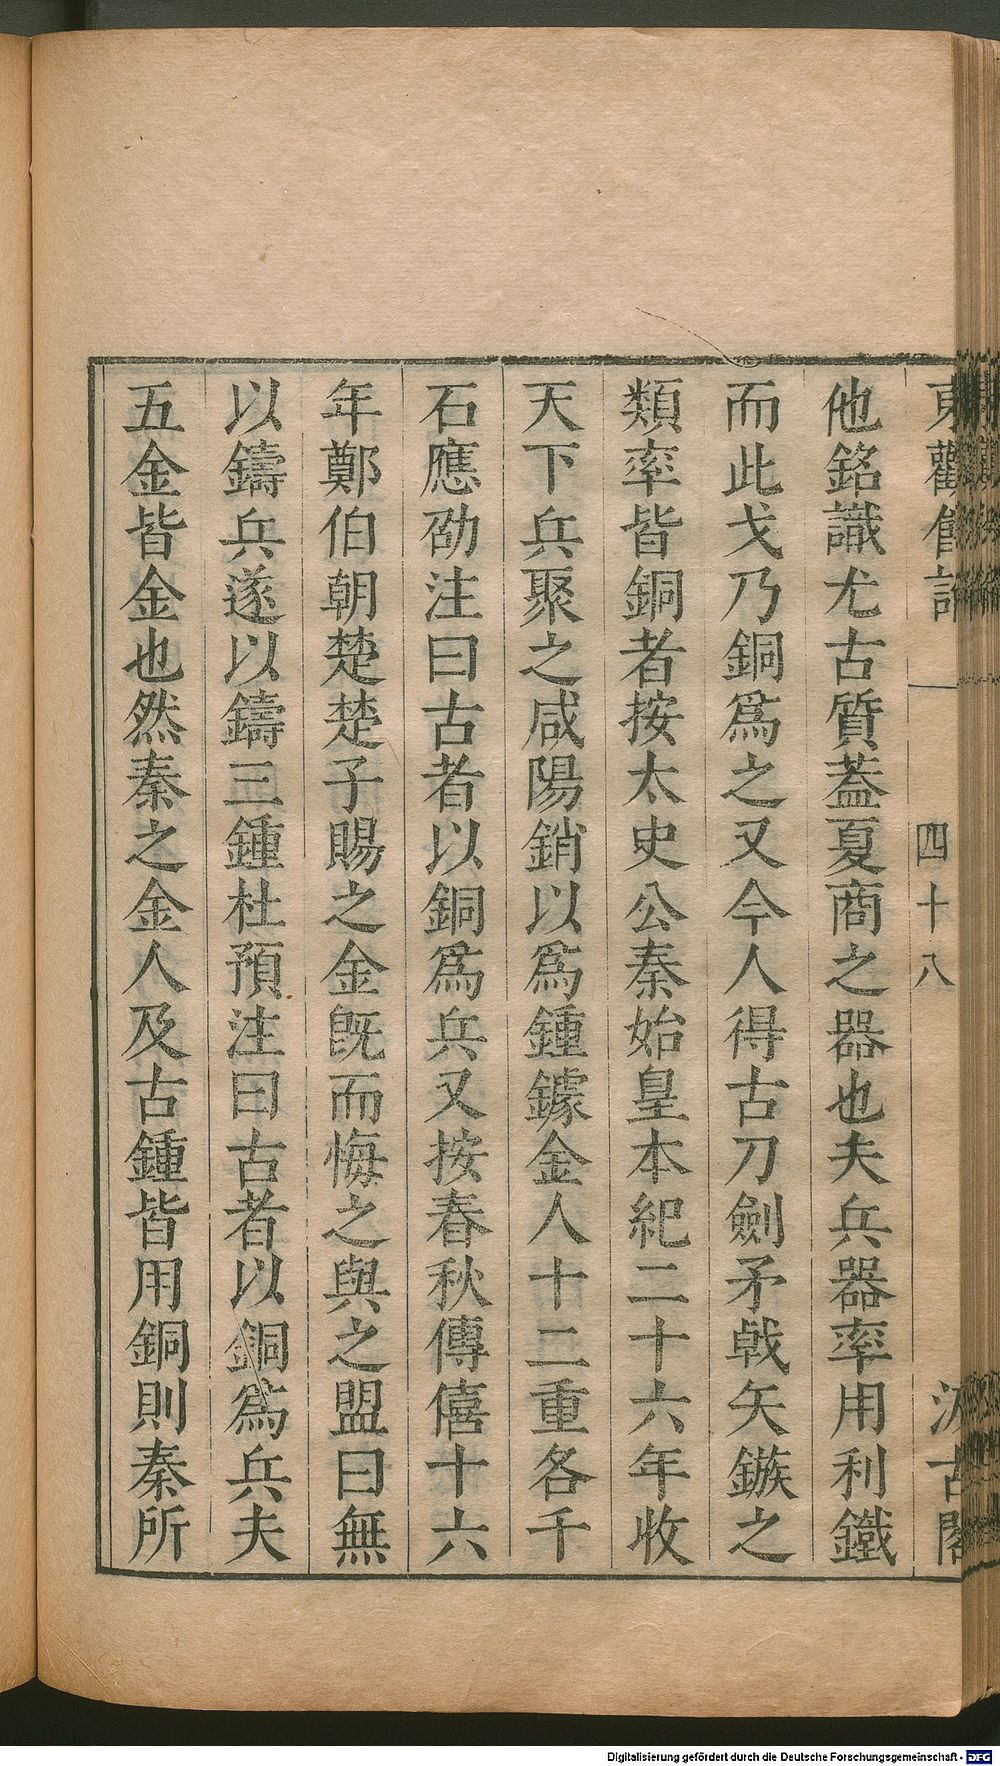 東觀餘論 四十八 汲古閣
他銘識尤古質葢夏商之器也夫兵器率用利鐵
而此戈乃銅爲之又今人得古刀劍矛戟矢鏃之
類率皆銅者按太史公秦始皇本紀二十六年收
天下兵聚之咸陽銷以爲鍾鐻金人十二重各千
石應劭注曰古者以銅爲兵又按春秋傳僖十六
年鄭伯朝楚楚子賜之金既而悔之與之盟曰無
以鑄兵遂以鑄三鍾杜預注曰古者以銅爲兵夫
五金皆金也然秦之金人及古鍾皆用銅則秦所
Digitalisierung gefördert durch die Deutsche Forschungsgemeinschaft - DFG